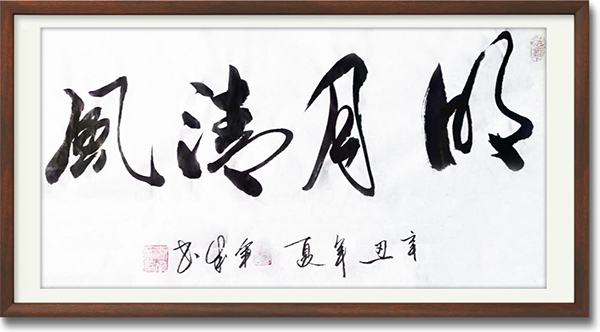 明月清風
辛丑年夏 书